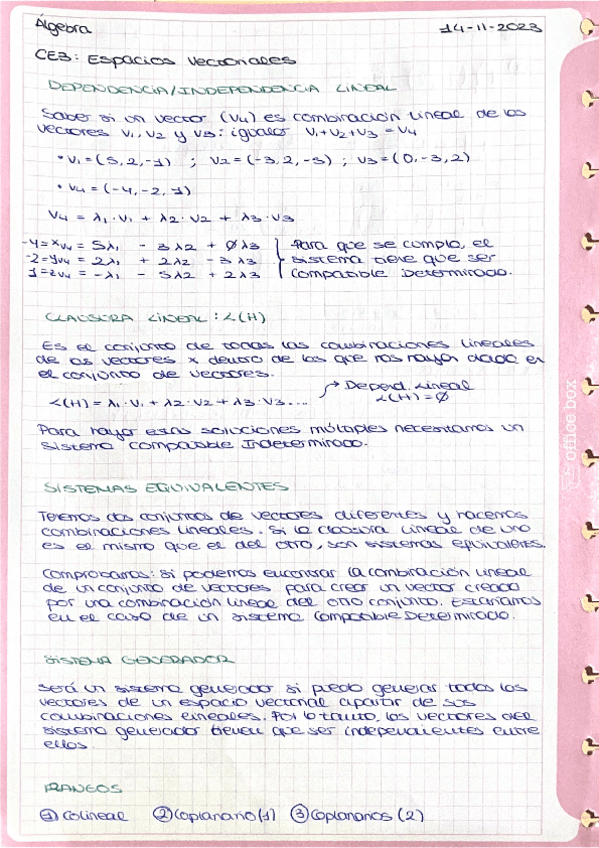 Álgebra 14-11-2023
CE3: Espacios Vectoriales
DEPENDENCIA/INDEPENDENCIA LINEAL
Saber si un vector (V4) es combinación lineal de los
vectores V1, V2 y V3: igualar V1+V2+V3 = V4
• V1 = (5, 2, -1) ; V2 = (-3, 2, -5) ; V3 = (0, -3, 2)
• V4 = (-4, -2, 1)
V4 = λ1 · V1 + λ2 · V2 + λ3 · V3
-4 = xV4 = 5λ1 - 3λ2 + 0λ3 Para que se cumpla, el
-2 = yV4 = 2λ1 + 2λ2 - 3λ3 sistema tiene que ser
1 = zV4 = -λ1 - 5λ2 + 2λ3 Compatible Determinado.
CLAUSURA LINEAL: L(H)
Es el conjunto de todas las combinaciones lineales
de os vectores x dentro de los que nos hayan dado en
el conjunto de vectores.
→ Depend. Lineal
L(H) = λ1 · V1 + λ2 · V2 + λ3 · V3 ... L(H) = Ø
Para hayar estas soluciones múltiples necesitamos un
Sistema Compatible Indeterminado.
SISTEMAS EQUIVALENTES
Tenemos dos conjuntos de vectores diferentes y hacemos
combinaciones lineales. Si la clausura lineal de uno
es el mismo que el del otro, son sistemas equivalentes.
Comprobamos: si podemos encontrar la combinación lineal
de un conjunto de vectores para crear un vector creado
por una combinación lineal del otro conjunto. Estaríamos
en el caso de un Sistema Compatible Determinado.
SISTEMA GENERADOR
Será un sistema generador si puedo generar todos los
vectores de un espacio vectorial apartir de sus
combinaciones lineales. Por lo tanto, los vectores del
sistema generador tienen que ser independientes entre
ellos.
RANGOS
① Colineal ② Coplanario (1) ③ Coplanarios (2)
office box